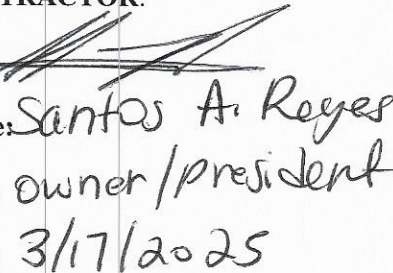 TRACTOR:
e: Santos A. Reyes
owner/president
3/17/2025